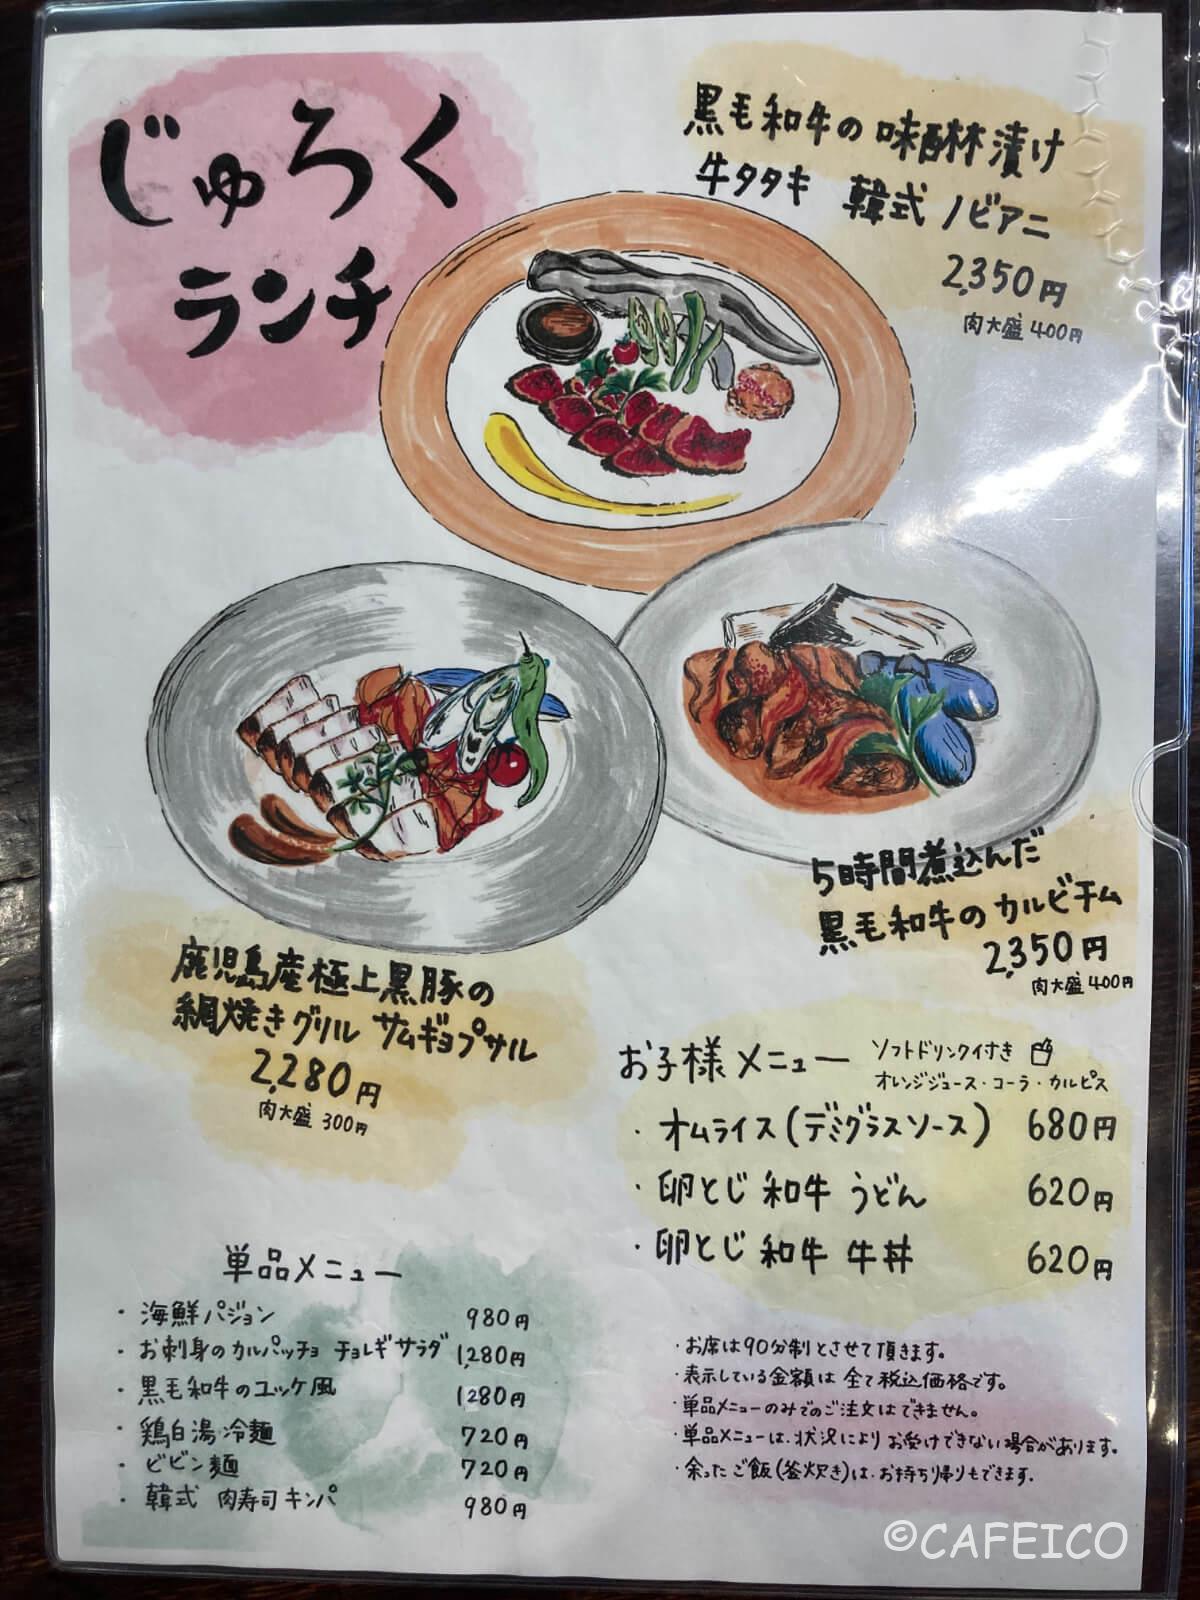 じゅろく
ランチ
黒毛和牛の味醂漬け
牛タタキ 韓式ノビアニ
2,350円
肉大盛 400円
5時間煮込んだ
黒毛和牛のカルビチム
2,350円
肉大盛 400円
鹿児島産極上黒豚の
網焼きグリル サムギョプサル
2,280円
肉大盛 300円
お子様メニュー ソフトドリンク付き
オレンジジュース・コーラ・カルピス
・オムライス(デミグラスソース) 680円
・卵とじ 和牛 うどん 620円
・卵とじ 和牛 牛丼 620円
単品メニュー
・海鮮パジョン 980円
・お刺身のカルパッチョ チョレギサラダ 1,280円
・黒毛和牛のユッケ風 1280円
・鶏白湯冷麺 720円
・ビビン麺 720円
・韓式 肉寿司キンパ 980円
・お席は90分制とさせて頂きます。
・表示している金額は全て税込価格です。
・単品メニューのみでのご注文はできません。
・単品メニューは、状況によりお受けできない場合があります。
・余ったご飯(釜炊き)は、お持ち帰りもできます。
©CAFEICO